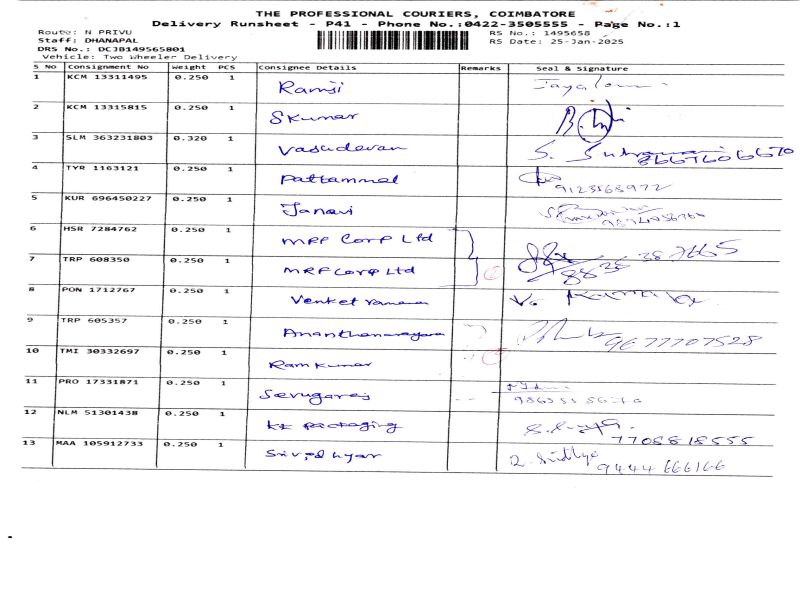 THE PROFESSIONAL COURIERS, COIMBATORE
Delivery Runsheet - P41 - Phone No.:0422-3505555 - Page No.:1
Route: N PRIVU
RS No.: 1495658
Staff: DHANAPAL
RS Date: 25-Jan-2025
DRS No.: DCJB149565801
Vehicle: Two Wheeler Delivery
S No Consignment No Weight PCS Consignee Details Remarks Seal & Signature
1 KCM 13311495 0.250 1 Ramji
2 KCM 13315815 0.250 1 S Kumar
3 SLM 363231803 0.320 1 Vasudevan S.
4 TYR 1163121 0.250 1 Pattammal
5 KUR 696450227 0.250 1 Janavi
6 HSR 7284762 0.250 1 MRF Corp Ltd
7 TRP 608350 0.250 1 MRF Corp Ltd
8 PON 1712767 0.250 1 Venket ramana
9 TRP 605357 0.250 1 9677707528
10 TMI 30332697 0.250 1 Ram Kumar
11 PRO 17331871 0.250 1 Sevugaraj
12 NLM 51301438 0.250 1 kk packaging 7708818555
13 MAA 105912733 0.250 1 9444 666166